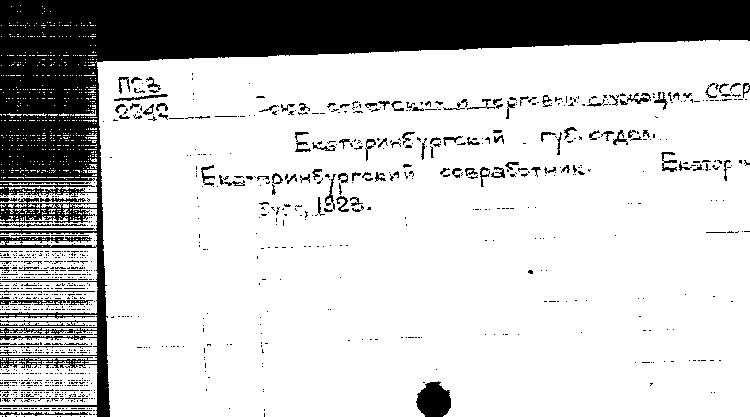 П23
2342
Союз советских и торговых служащих СССР
Екатеринбургский губ. отдел.
Екатеринбургский совработник. Екатерин
бург, 1923.